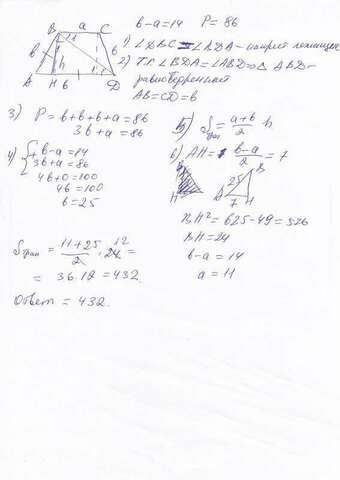 B a C
b h b
A H b D
b-a=14 P=86
1) ∠DBC = ∠BDA - накрест лежащие
2) Т.к ∠BDA=∠ABD => △ ABD-
равнобедренный
AB=CD=b
3) P=b+b+b+a=86
3b+a=86
4) { b-a=14
3b+a=86
4b+0=100
4b=100
b=25
5) Sтрап = a+b/2 · h
6) AH = b-a/2 = 7
B
25
A 7 H
BH²=625-49=576
BH=24
b-a=14
a=11
Sтрап = 11+25/2 · 24 12 =
= 36.12=432.
Ответ = 432.